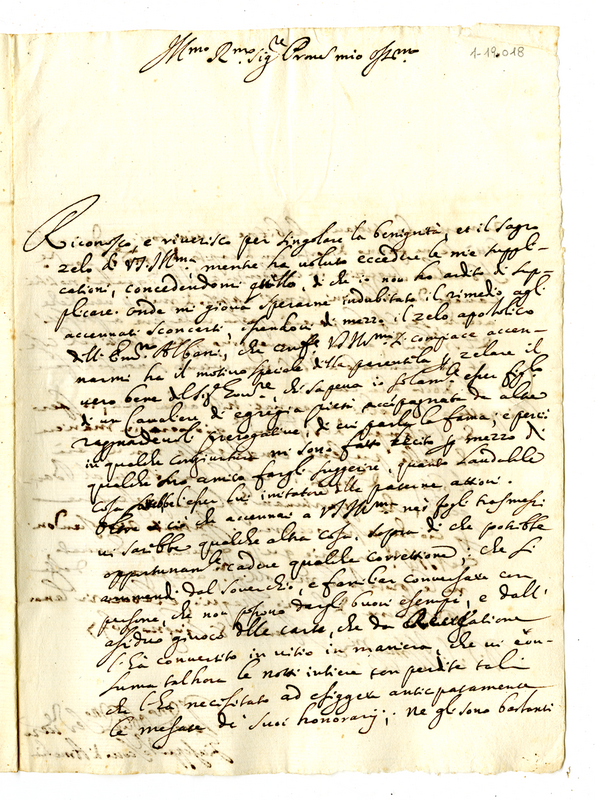 Ill.mo R.mo Sig.re Prone mio oss.mo
1-19.018
Riconosco, e riverisco per singolare la benignità, et il sagro
zelo di V.S. Ill.ma mentre ha voluto eccedere le mie suppli-
cationi, concedendomi quello, di che io non ho ardito di sup-
plicare. Onde mi giova sperarne indubitato il rimedio agli
accennati sconcerti, stando di mezzo il zelo apostolico
dell' Em.mo Albani, che V.S. Ill.ma si compiace accen-
narmi ha il motivo speciale della parentela di zelare il
vero bene del Sig.r che sapeva io solam.te esser figlio
di un Cavaliere di egregia pietà accompagnata da altre
riguardevoli prerogative, di cui parla la fama; e perciò
in qualche congiuntura mi sono fatto lecito per mezzo di
qualche suo amico fargli suggerire, quanto laudabile
cosa sarebbe esser lui imitatore delle paterne attioni.
Oltre a ciò che accennai a V.S. Ill.ma nei fogli trasmessi
vi sarebbe qualche altra cosa, sopra di che potrebbe
opportunam.te cadere qualche correttione; che si
dal soverchio, e familiar conversare con
persone, che non possono dargli buoni esempi, e dall'
assiduo giuoco delle carte, che da Recreatione
l' ha convertito in vitio in maniera, che vi con-
suma talhora le notti intiere con perdite tali
che l' ha necessitato ad esiggere anticipatamente
le mesate de' suoi honorarij; ne gli sono bastanti